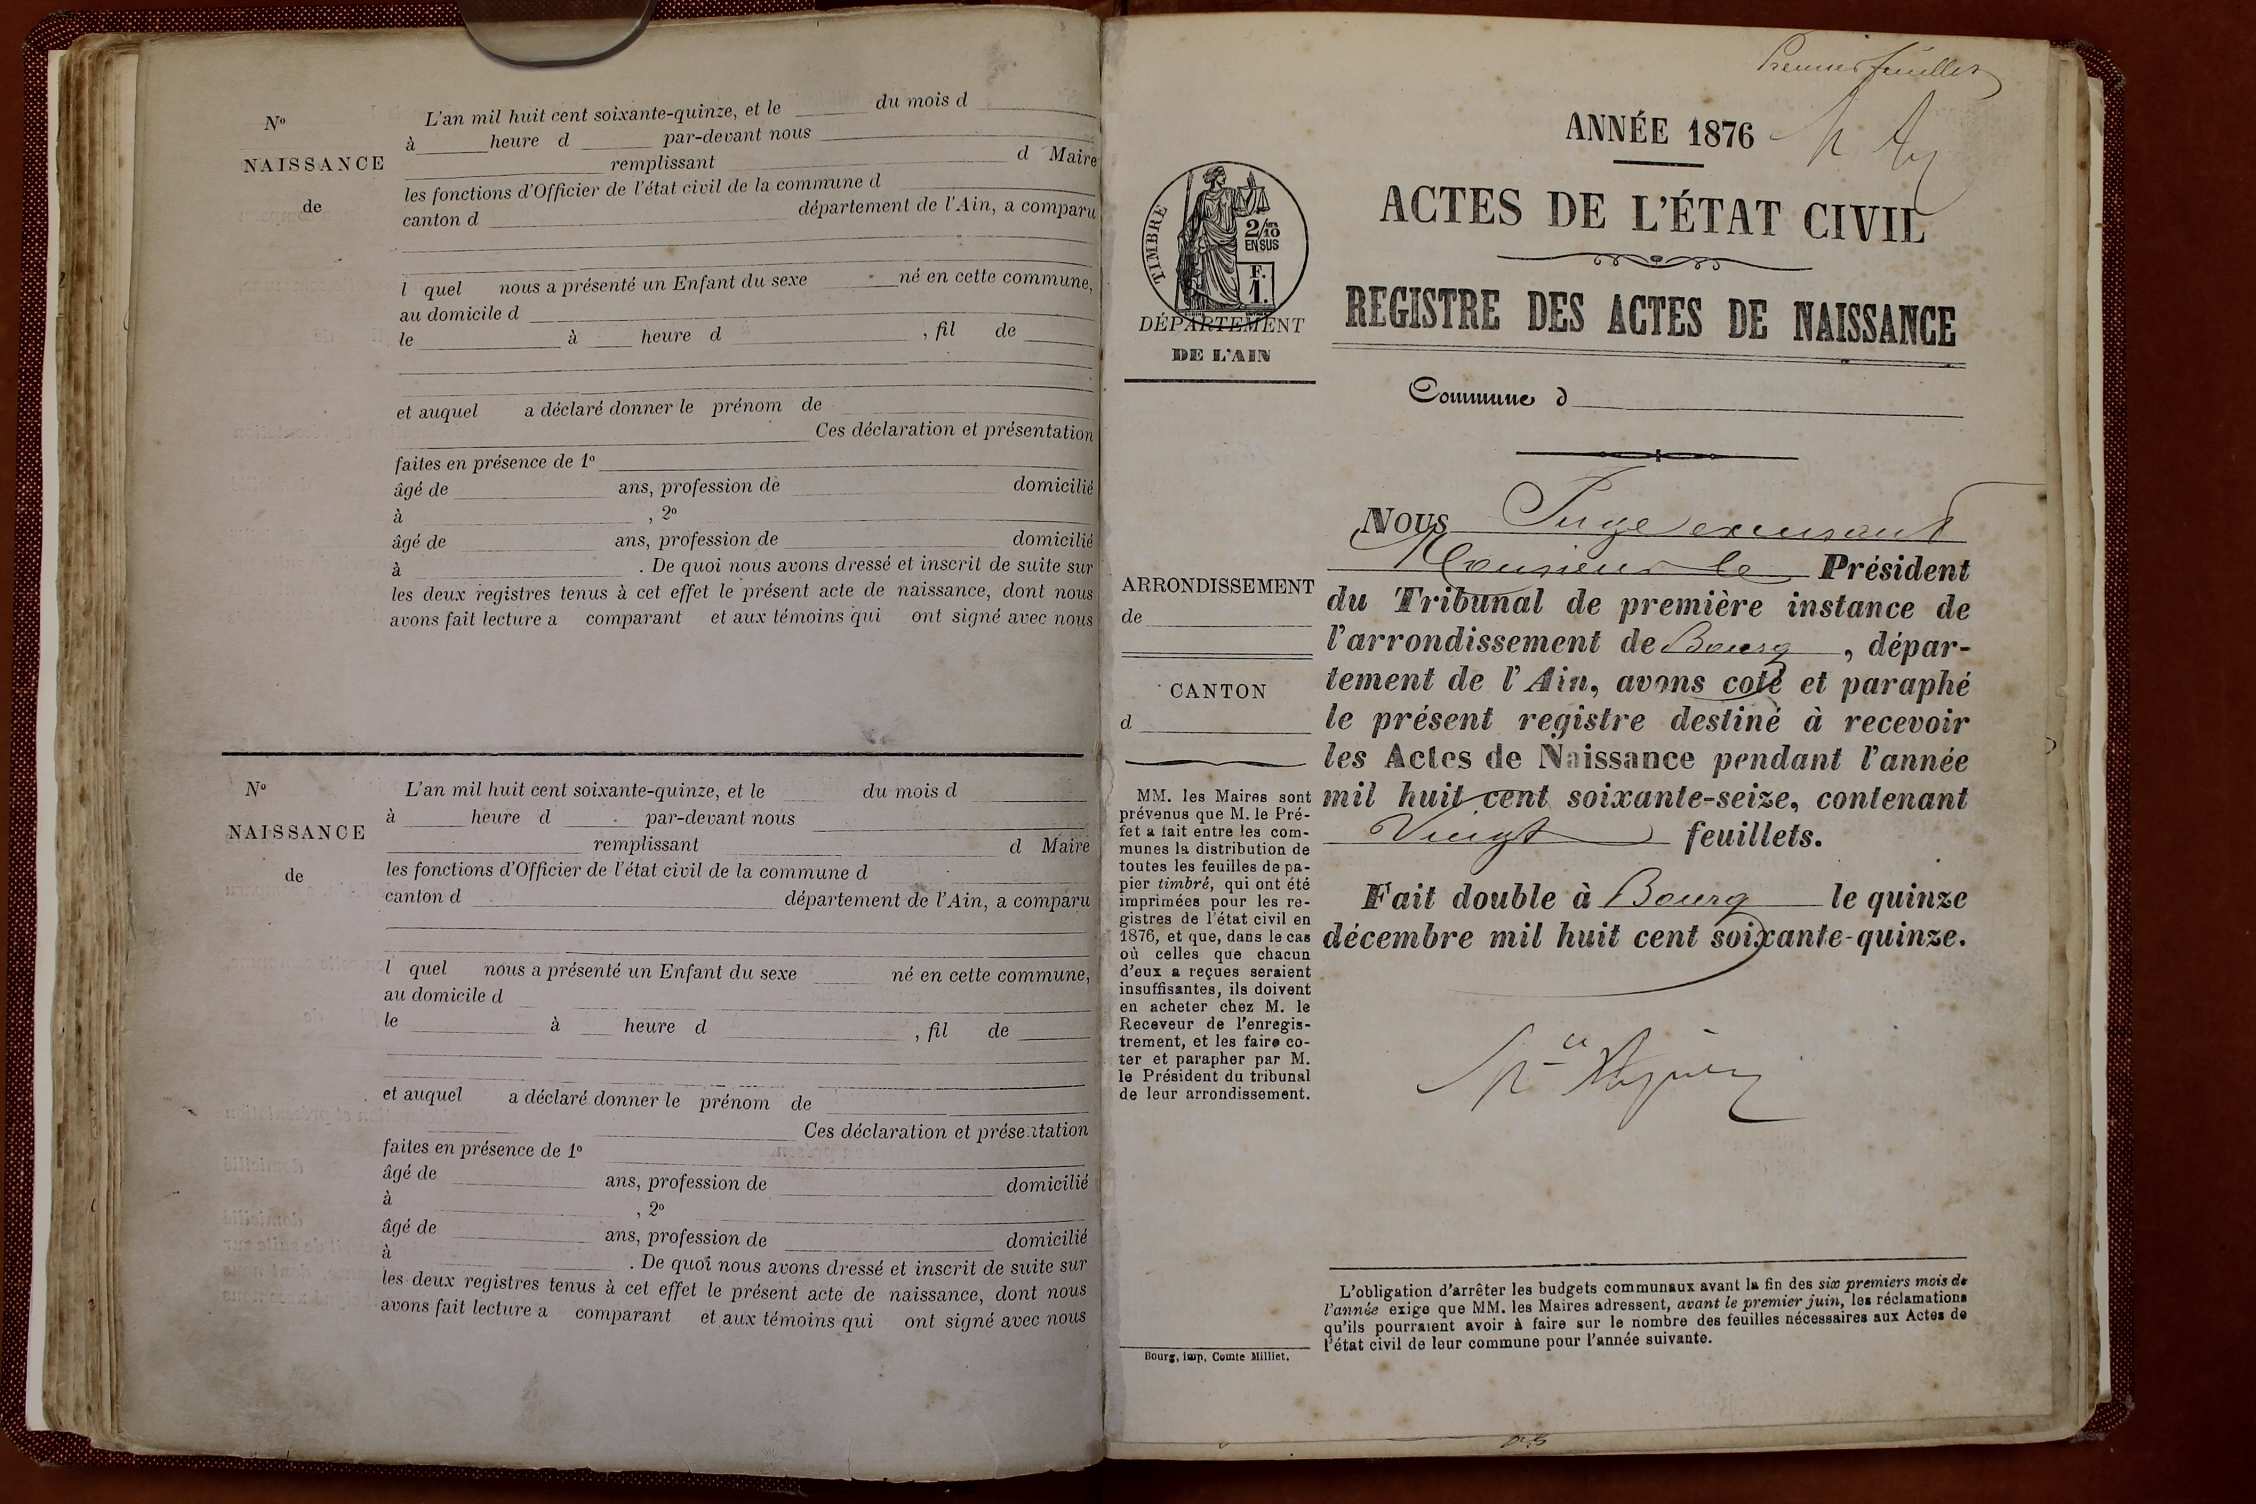 Nº
NAISSANCE
de
L'an mil huit cent soixante-quinze, et le du mois d
à heure d par-devant nous
remplissant d Maire
les fonctions d'Officier de l'état civil de la commune d
canton d département de l'Ain, a comparu
l quel nous a présenté un Enfant du sexe né en cette commune,
au domicile d
le à heure d , fil de
et auquel a déclaré donner le prénom de
Ces déclaration et présentation
faites en présence de 1º
âgé de ans, profession de domicilié
à , 2º
âgé de ans, profession de domicilié
à . De quoi nous avons dressé et inscrit de suite sur
les deux registres tenus à cet effet le présent acte de naissance, dont nous
avons fait lecture a comparant et aux témoins qui ont signé avec nous
Nº
NAISSANCE
de
L'an mil huit cent soixante-quinze, et le du mois d
à heure d par-devant nous
remplissant d Maire
les fonctions d'Officier de l'état civil de la commune d
canton d département de l'Ain, a comparu
l quel nous a présenté un Enfant du sexe né en cette commune,
au domicile d
le à heure d , fil de
et auquel a déclaré donner le prénom de
Ces déclaration et présentation
faites en présence de 1º
âgé de ans, profession de domicilié
à , 2º
âgé de ans, profession de domicilié
à . De quoi nous avons dressé et inscrit de suite sur
les deux registres tenus à cet effet le présent acte de naissance, dont nous
avons fait lecture a comparant et aux témoins qui ont signé avec nous
Premier feuillet
ANNÉE 1876
ACTES DE L'ÉTAT CIVIL
REGISTRE DES ACTES DE NAISSANCE
Commune d
TIMBRE
2/10
EN SUS
F.
1.
DÉPARTEMENT
DE L'AIN
ARRONDISSEMENT
de
CANTON
d
MM. les Maires sont
prévenus que M. le Pré-
fet a fait entre les com-
munes la distribution de
toutes les feuilles de pa-
pier timbré, qui ont été
imprimées pour les re-
gistres de l'état civil en
1876, et que, dans le cas
où celles que chacun
d'eux a reçues seraient
insuffisantes, ils doivent
en acheter chez M. le
Receveur de l'enregis-
trement, et les faire co-
ter et parapher par M.
le Président du tribunal
de leur arrondissement.
Bourg, imp. Comte Milliet.
Nous Juge excusant
Monsieur le Président
du Tribunal de première instance de
l'arrondissement de Bourg , dépar-
tement de l'Ain, avons coté et paraphé
le présent registre destiné à recevoir
les Actes de Naissance pendant l'année
mil huit cent soixante-seize, contenant
Vingt feuillets.
Fait double à Bourg le quinze
décembre mil huit cent soixante-quinze.
L'obligation d'arrêter les budgets communaux avant la fin des six premiers mois de
l'année exige que MM. les Maires adressent, avant le premier juin, les réclamations
qu'ils pourraient avoir à faire sur le nombre des feuilles nécessaires aux Actes de
l'état civil de leur commune pour l'année suivante.